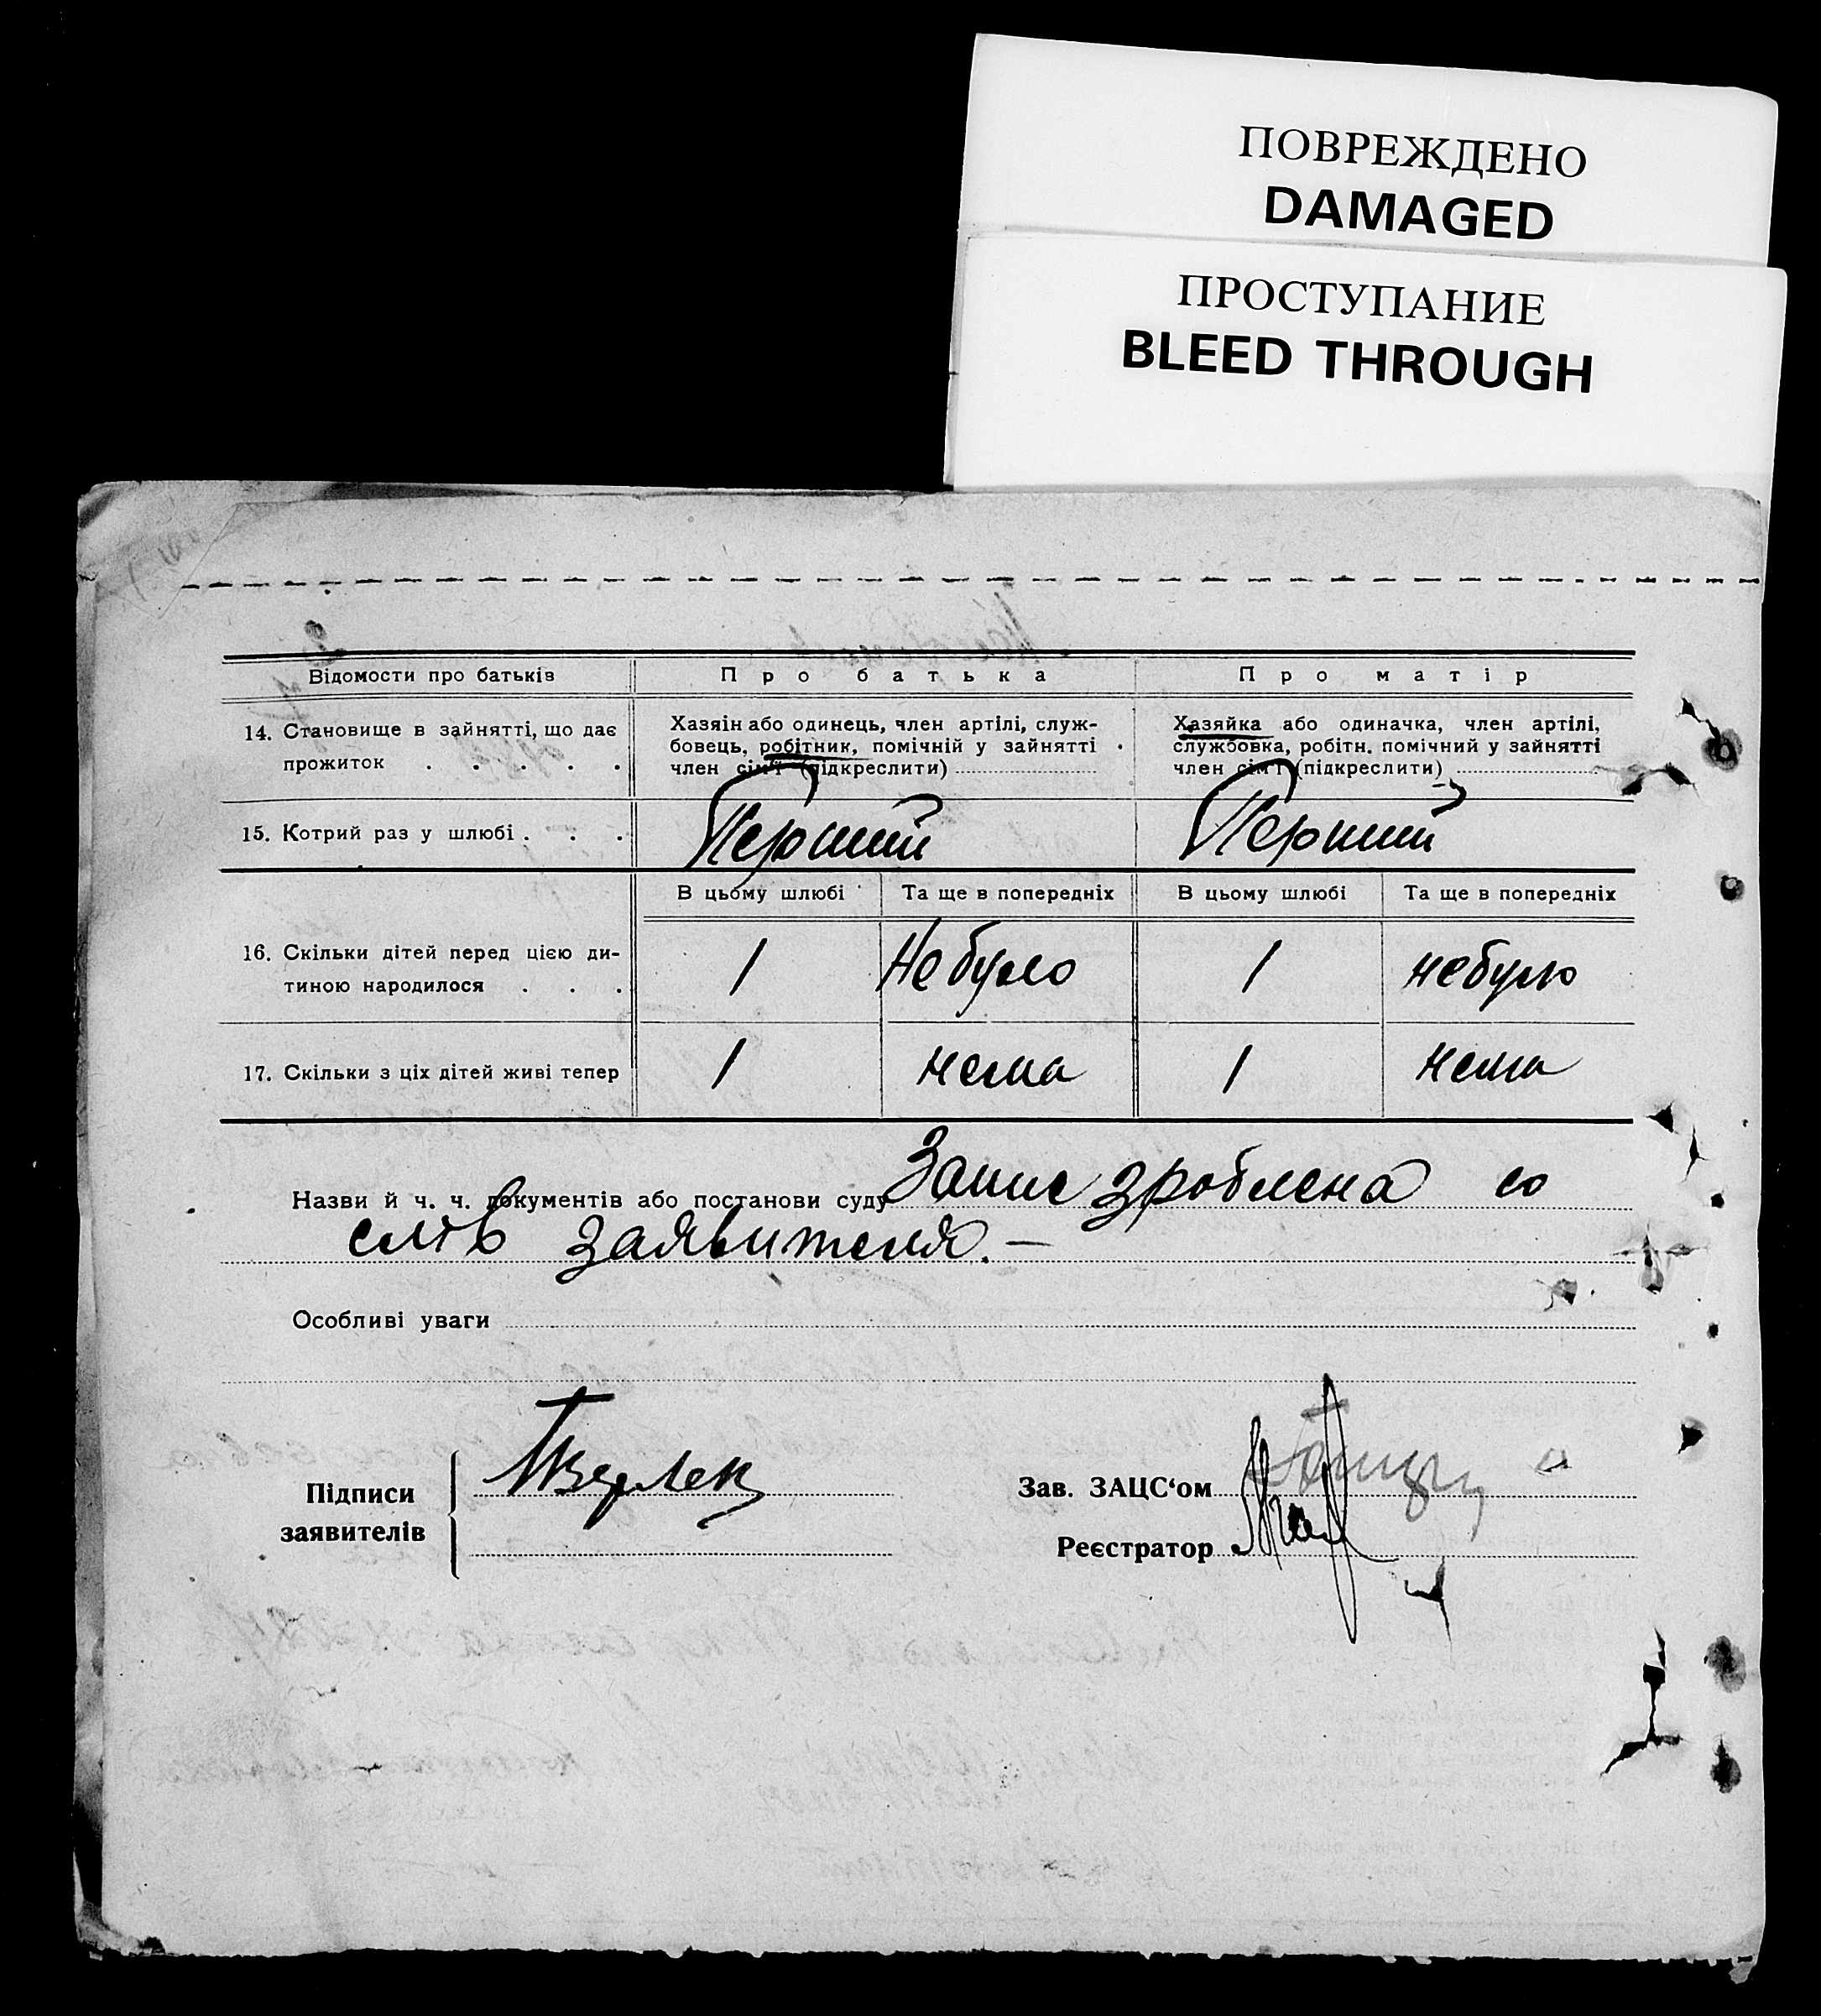 ПОВРЕЖДЕНО
DAMAGED
ПРОСТУПАНИЕ
BLEED THROUGH
Відомости про батьків Про батька Про матір
14. Становище в зайнятті, що дає
прожиток . . . . .
Хазяін або одинець, член артілі, служ-
бовець, робітник, помічній у зайнятті
член сім'ї (підкреслити)
Хазяйка або одиначка, член артілі,
службовка, робітн. помічний у зайнятті
член сім'ї (підкреслити)
15. Котрий раз у шлюбі . . . Перший Перший
В цьому шлюбі Та ще в попередніх В цьому шлюбі Та ще в попередніх
16. Скільки дітей перед цією ди-
тиною народилося . . . 1 Небуло 1 небуло
17. Скільки з ціх дітей живі тепер 1 нема 1 нема
Назви й ч. ч. документів або постанови суду Запис зроблена со
слів заявителя. —
Особливі уваги
Підписи
заявителів
Зав. ЗАЦС‘ом
Реєстратор